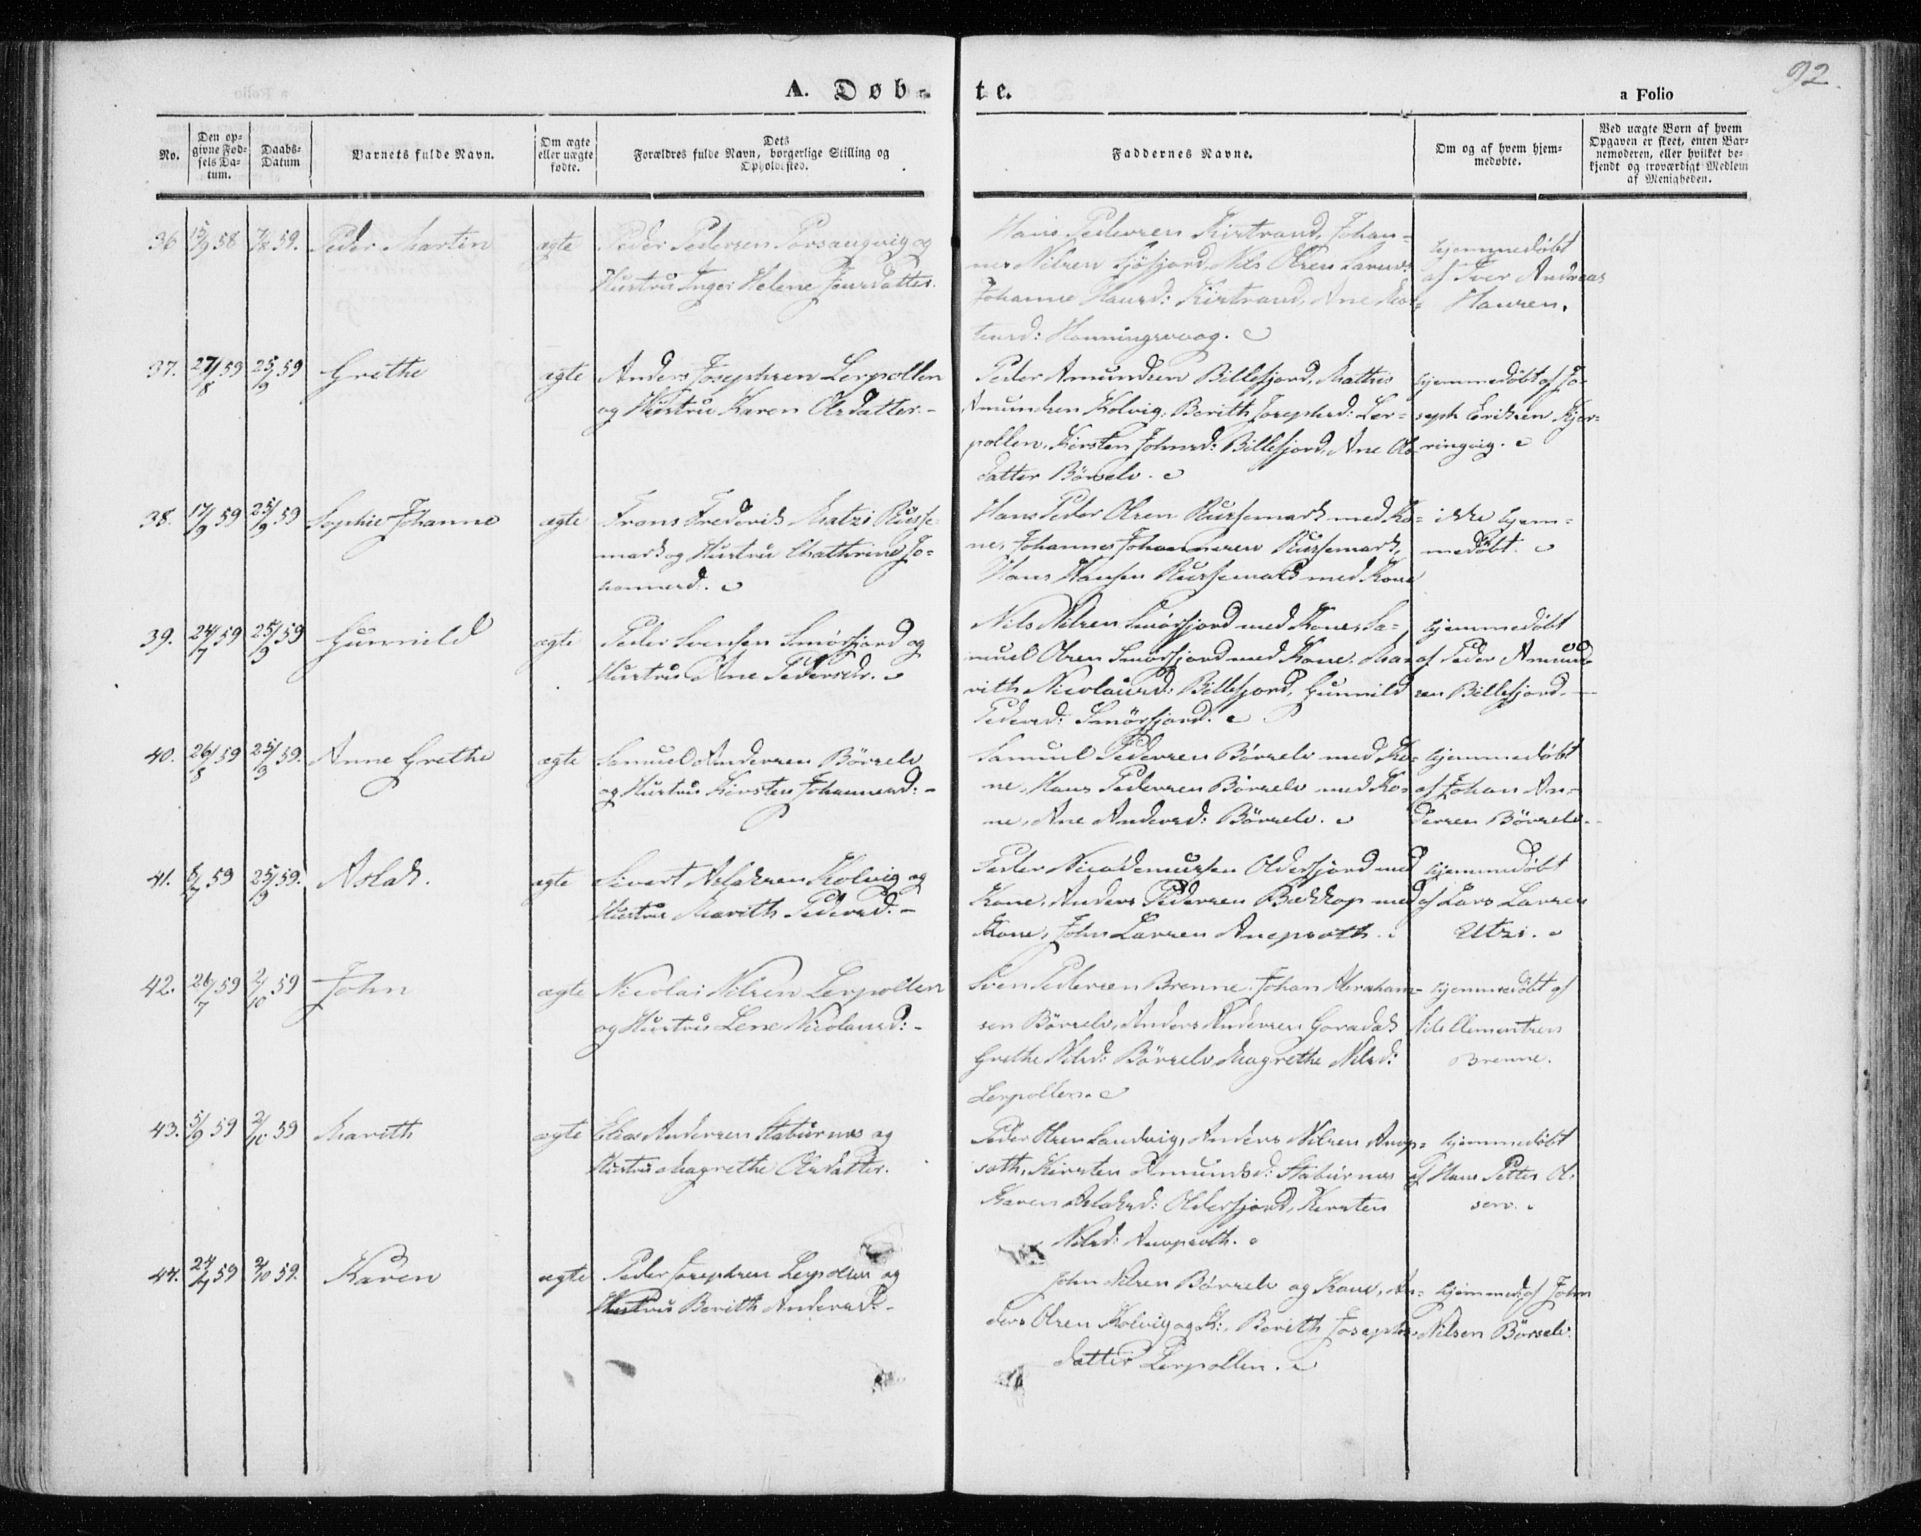 92.
A. Døb-
te.
a Folio
No.
Den op-
givne Fød-
sels Da-
tum.
Daabs-
Datum
Barnets fulde Navn.
Om ægte
eller uægte
fødte.
Dets
Forældres fulde Navn, borgerlige Stilling og
Opholdssted.
Faddernes Navne.
Om og af hvem hjem-
medøbte.
Ved uægte Børn af hvem
Opgaven er skeet, enten Bar-
nemoderen, eller hvilket be-
kjendt og troværdigt Medlem
af Menigheden.
36 13/9 58 7/8 59. Peder Martin ægte
Peder Pedersen Porsangvig og
Hustru Inger Helene
Hans Pedersen Kistrand, Johan-
nes Nilsen Nils Olsen
Johanne Hansd: Kistrand, Ane
Honningsvaag.
hjemmedøbt
af Iver Andreas
Hansen.
37. 27/8 59 25/9 59 Grethe ægte
Anders Josephsen Lerpollen
og Hustru Karen Olsdatter. -
Peder Amundsen Billefjord, Mathis
Amundsen Kolvig, Berith Josephsd: Ler-
pollen, Kirsten Johnsd: Billefjord, Ane Ols-
datter Børselv.
hjemmedøbt af Jo-
seph Eriksen Kjer-
ringvig.
38. 17/9 59 25/9 59 Sophie Johanne ægte
Frans Frederik Matzi Russe-
mark og Hustru Chathrine Jo-
hannesd.
Hans Peder Olsen Russemark med Ko-
ne, Johannes Johannesen Russemark,
Hans Hansen Russemark med Kone
ikke hjem-
medøbt.
39. 24/7 59 25/9 59 Gunnild ægte
Peder Svensen Smørfjord og
Hustru Ane Pedersdr.
Nils Nilsen Smørfjord med Kone, Sa-
muel Olsen Smørfjord med Kone, Ma-
rith Nicolausd: Billefjord, Gunnild
Pedersd: Smørfjord.
hjemmedøbt
af Peder Amund-
sen Billefjord.
40. 26/8 59 25/9 59. Anne Grethe ægte
Samuel Andersen Børselv
og Hustru Kirsten Johannesd: -
Samuel Pedersen Børselv med Ko-
ne, Hans Pedersen Børselv med Ko-
ne, Ane Andersd: Børselv.
hjemmedøbt
af Johan An-
dersen Børselv.
41. 59 25/9 59. Aslak. ægte
Sivert Aslaksen Kolvig og
Hustru Marith Pedersd: -
Peder Nicodemusen Olderfjord med
Kone, Anders Pedersen med
Kone, John Larsen
hjemmedøbt
af Lars Larsen
Utzi.
42. 26/7 59 2/10 59 John ægte
Nicolai Nilsen Lerpollen
og Hustru Lene Nicolausd: -
Sven Pedersen Brenne, Johan Abraham-
sen Børselv, Anders Andersen Goradak
Grethe Nilsd: Børselv Magrethe Nilsd:
Lerpollen.
hjemmedøbt af
Nils Clementsen
Brenne.
43. 5/9 59 2/10 59 Marith ægte
Elias Andersen Stabursnæs og
Hustru Magrethe Olsdatter.
Peder Olsen Sandvig, Anders Nilsen
Kirsten Amundsd: Stabursnæs
Karen Aslaksd: Olderfjord, Kirsten
Nilsd:
hjemmedøbt
af Hans Petter Ol-
sen.
44. 24/7 59 2/10 59. Karen ægte
Peder Josephsen Lerpollen og
Hustru Berith Andersd: -
John Nilsen Børselv og Kone, An-
ders Olsen Kolvig og K:, Berith Josephs-
datter Lerpollen.
hjemmed: af John
Nilsen Børselv.